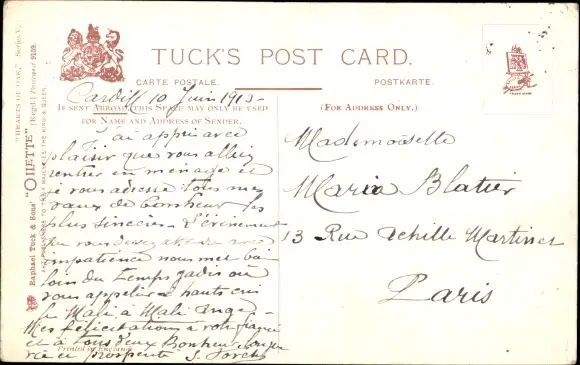 TUCK'S POST CARD.
CARTE POSTALE. POSTKARTE.
IF SENT ABROAD, THIS SPACE MAY ONLY BE USED
FOR NAME AND ADDRESS OF SENDER.
(FOR ADDRESS ONLY.)
Cardiff 10 Juin 1913 -
J'ai appris avec
plaisir que vous alliez
entrer en ménage et
je vous adresse tous mes
vœux de bonheur les
plus sincères - L'événement
que vous devez attendre avec
impatience nous met
loin du temps jadis où
vous appeliez à hauts cris
le Mali à Mali ange -
Mes félicitations à votre fiancé
et à tous deux Bonheur longue
vie et prospérité
Mademoiselle
Maria Blatier
13 Rue Achille Martinet
Paris
Raphael Tuck & Sons' "OILETTE" [Regd.] Postcard 9109.
"HEARTS OF OAK," Series V.
Printed in England